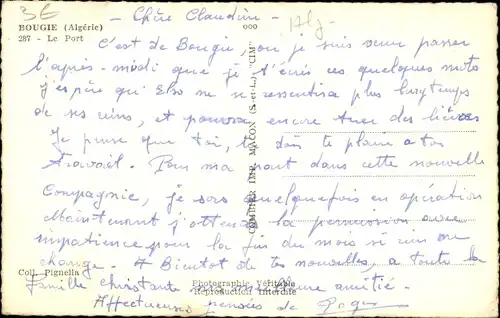 3E
- Chère Claudine -
Alg
BOUGIE (Algérie)
287 - Le Port
C'est de Bougie, où je suis venu passer
l'après-midi que je t'écris ces quelques mots
j'espère qu' ne se ressentira plus longtemps
de ses , et pourra encore tuer des lièvres
Je pense que toi, tu dois te plaire à ton
travail. Pour ma part dans cette nouvelle
Compagnie, je sors quelquefois en opération
Maintenant j'attends la permission avec
impatience pour la fin du mois si rien ne
change. A Bientôt de tes nouvelles, à toute la
famille ma bonne amitié.
Affectueuses pensées de Roger
COMBIER IMP. MACON (S.-et-L.) "CIM"
Coll. Pignella
Photographie Véritable
Reproduction Interdite